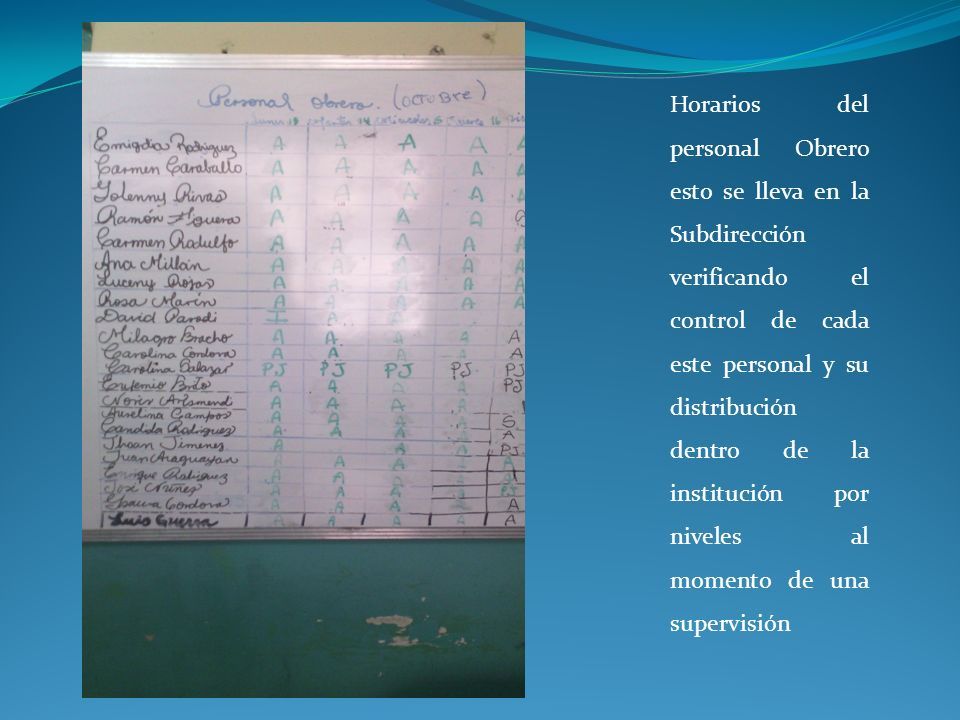 Personal Obrero. (OCTUBRE)
lunes 13 martes 14 miercoles 15 Jueves 16
Emigdia Rodriguez A A A A A
Carmen Caraballo A A A A A
Yolenny Rivas A A A A A
Ramón Higuera A A A A
Carmen Rodulfo A A A A A
Ana Millán A A A A A
Luceny Rojas A A A A A
Rosa Marín A A A A A
David Parodi I A A A
Milagro Bracho A A A A A
Carolina Cordova A A A A A
Carolina Salazar PJ PJ PJ PJ PJ
Eufemio Brito A A A A PJ
Nores Arismendi A A A A
Aurelina Campos A A A A S
Candida Rodriguez A A A A A
Jhoan Jimenez A A A PJ
Juan Araguayan A A A A
Enrique Rodriguez A A A
José Núñez A A A PJ
Cordova A A A A
Luis Guerra A A A A A
Horarios del
personal Obrero
esto se lleva en la
Subdirección
verificando el
control de cada
este personal y su
distribución
dentro de la
institución por
niveles al
momento de una
supervisión